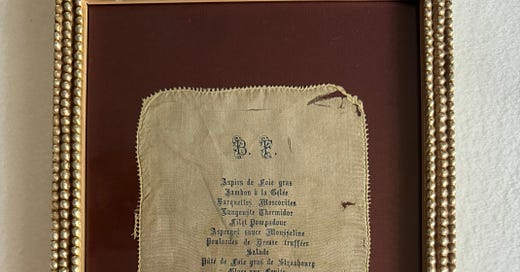 B. F.
Aspics de Foie gras
Jambon à la Gelée
Barquettes Moscovites
Langouste Thermidor
Filet Pompadour
Asperges sauce Mousseline
Poulardes de Bresse truffées
Salade
Pâté de Foie gras de Strasbourg
Glace aux Fruits